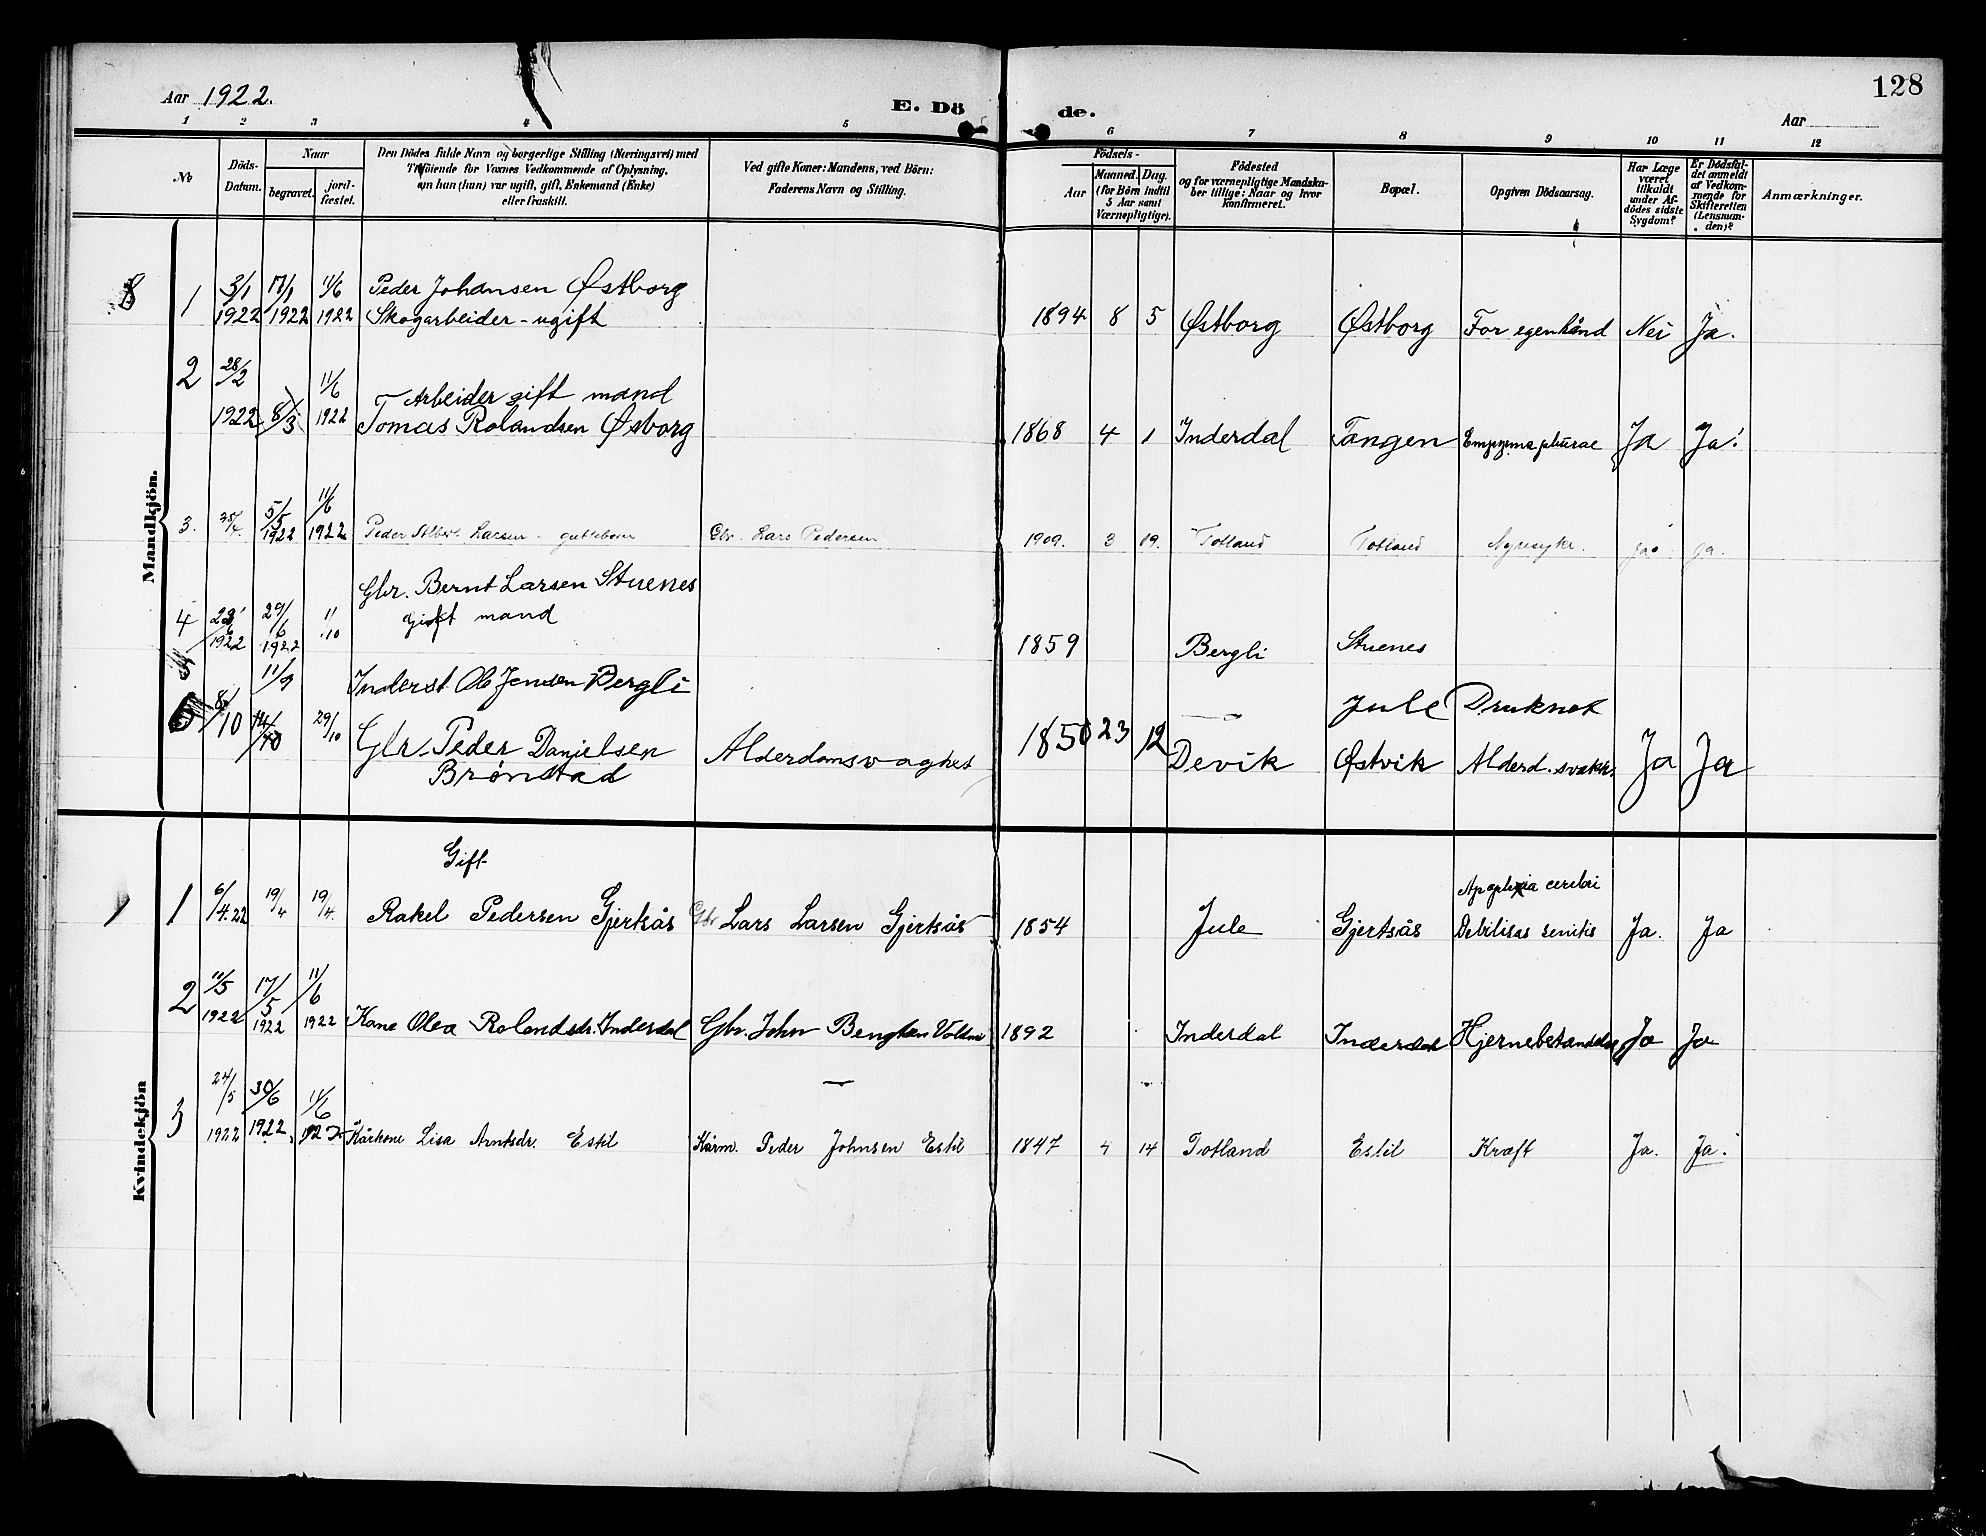 128
Aar 1922.
E. Dö de.
Aar
1 2 3 4 5 6 7 8 9 10 11 12
№
Döds-
Datum.
Naar
begravet.
jord-
fæstet.
Den Dödes fulde Navn og borgerlige Stilling (Næringsvei) med
Tilföiende for Voxnes Vedkommende af Oplysning,
om hun (han) var ugift, gift, Enkemand (Enke)
eller fraskilt.
Ved gifte Koner: Mandens, ved Börn:
Faderens Navn og Stilling.
Födsels-
Aar
Maaned. Dag.
(for Börn indtil
5 Aar samt
Værnepligtige).
Födested
og for værnepligtige Mandska-
ber tillige: Naar og hvor
konfirmeret.
Bopæl.
Opgiven Dödsaarsag.
Har Læge
været
tilkaldt
under Af-
dödes sidste
Sygdom?
Er Dödsfal-
det anmeldt
af Vedkom-
mende for
Skifteretten
(Lensman-
den)?
Anmærkninger.
Mandkjön.
8
1 3/1 17/1 11/6 Peder Johansen Østborg
1922 1922 1922 Skogarbeider - ugift 1894 8 5 Østborg Østborg For egenhånd Nei Ja.
2 28/2 11/6 Arbeider gift mand
1922 8/3 1922 Tomas Rolandsen Øsborg 1868 4 1 Inderdal Tangen Empyema pleurae Ja Ja.
3. 5/5 11/6
1922 1922 Peder Larsen - Gbr. Lars Pedersen 1909. 3 19. Totland Totland ja ja.
Gbr. Bernt Larsen Stuenes
4 29/6 11/10 gift mand
1922 1922 1859 Bergli Stuenes
5 11/9 Inderst Ole Jensen Bergli — Jule Druknet
6 8/10 14/10 29/10 Glr. Peder Danjelsen Alderdomsvaghet 1850 23 12 Devik Østvik Alderd. svakh. Ja Ja
Brønstad
Kvindekjön
Gift
Apoplexia cerebri
1 6/4.22 19/4 19/4. Rakel Pedersen Gjertsås Gbr Lars Larsen Gjertsås 1854 Jule Gjertsås Debilitas senilis Ja. Ja
2 10/5 17/5 11/6
1922 1922 1922 Kone Olea Rolandsdr. Inderdal Gbr. John Bengtsen 1892 Inderdal Inderdal Hjernebetændelse Ja Ja
3 24/5 30/6 11/6
1922 1922 1922 Kårkone Lisa Arntsdr. Estil Kårm. Peder Johnsen Estil 1847 4 14 Totland Estil Kræft Ja. Ja.